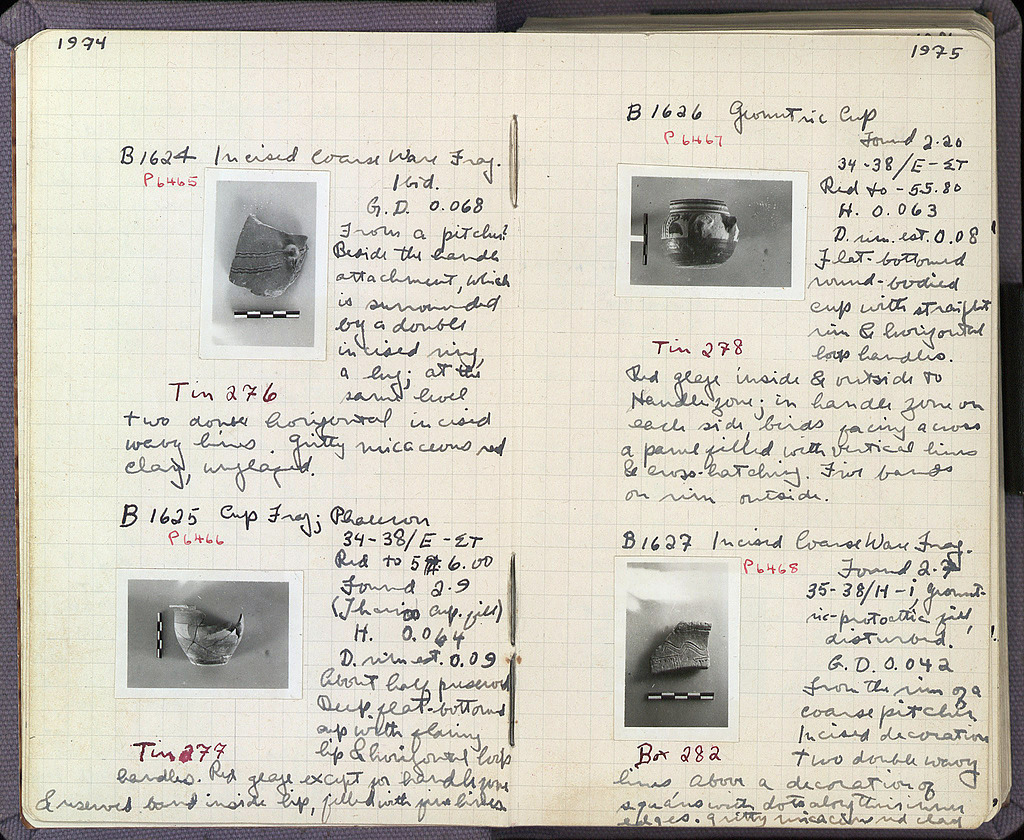 1974
B 1624 Incised Coarse Ware Frag.
P6465
Ibid.
G.D. 0.068
From a pitcher?
Beside the handle
attachment, which
is surrounded
by a double
incised ring,
a lug; at the
same level
Tin 276
two double horizontal incised
wavy lines. Gritty micaceous red
clay, unglazed.
B 1625 Cup Frag; Phaleron
P6466
34-38/E-ΣΤ
Red to 6.00
Found 2.9
cup, fill)
H. 0.064
D. rim est. 0.09
About half preserved
Deep flat-bottomed
cup with flaring
lip & horizontal loop
Tin 277
handles. Red glaze except for handle zone
& reserved band inside lip, filled with fine lines.
1975
B 1626 Geometric Cup
P6467
Found 2.20
34-38/E-ΣΤ
Red to -55.80
H. 0.063
D. rim. est. 0.08
Flat-bottomed
round-bodied
cup with straight
rim & horizontal
loop handles.
Tin 278
Red glaze inside & outside to
Handle zone; in handle zone on
each side, birds facing across
a panel filled with vertical lines
& cross-hatching. Five bands
on rim outside.
B 1627 Incised Coarse Ware Frag.
P6468
Found 2.7
35-38/H-i, Geomet-
ric-protoattic fill,
disturbed.
G.D. 0.042
From the rim of a
coarse pitcher
Incised decoration
Box 282
two double wavy
lines above a decoration of
squares with dots along their inner
edges. Gritty micaceous red clay